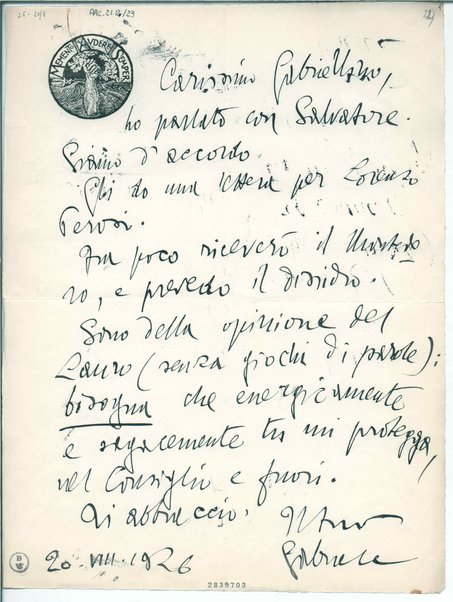 26-20/8 ARC.21.12/29
MEMENTO AUDERE SEMPER
Carissimo Gabriellino,
ho parlato con Salvatore.
Siamo d'accordo
Gli do una lettera per Lorenzo
Perosi.
Tra poco riceverò il
ro, e prevedo il dissidio.
Sono della opinione del
Lauro (senza giochi di parole):
bisogna che energicamente
e sagacemente tu mi protegga,
nel Consiglio e fuori.
Ti abbraccio. Il tuo
20. VIII. 1926 Gabriele
2839703